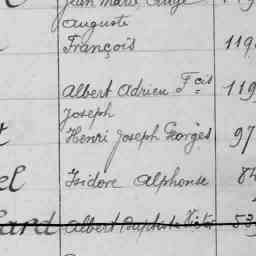 Jean Marie
Auguste
François 119
Albert Adrien Fçis 119
Joseph
t Henri Joseph Georges 97
el Isidore Alphonse 84
ard Albert Baptiste Victor 53